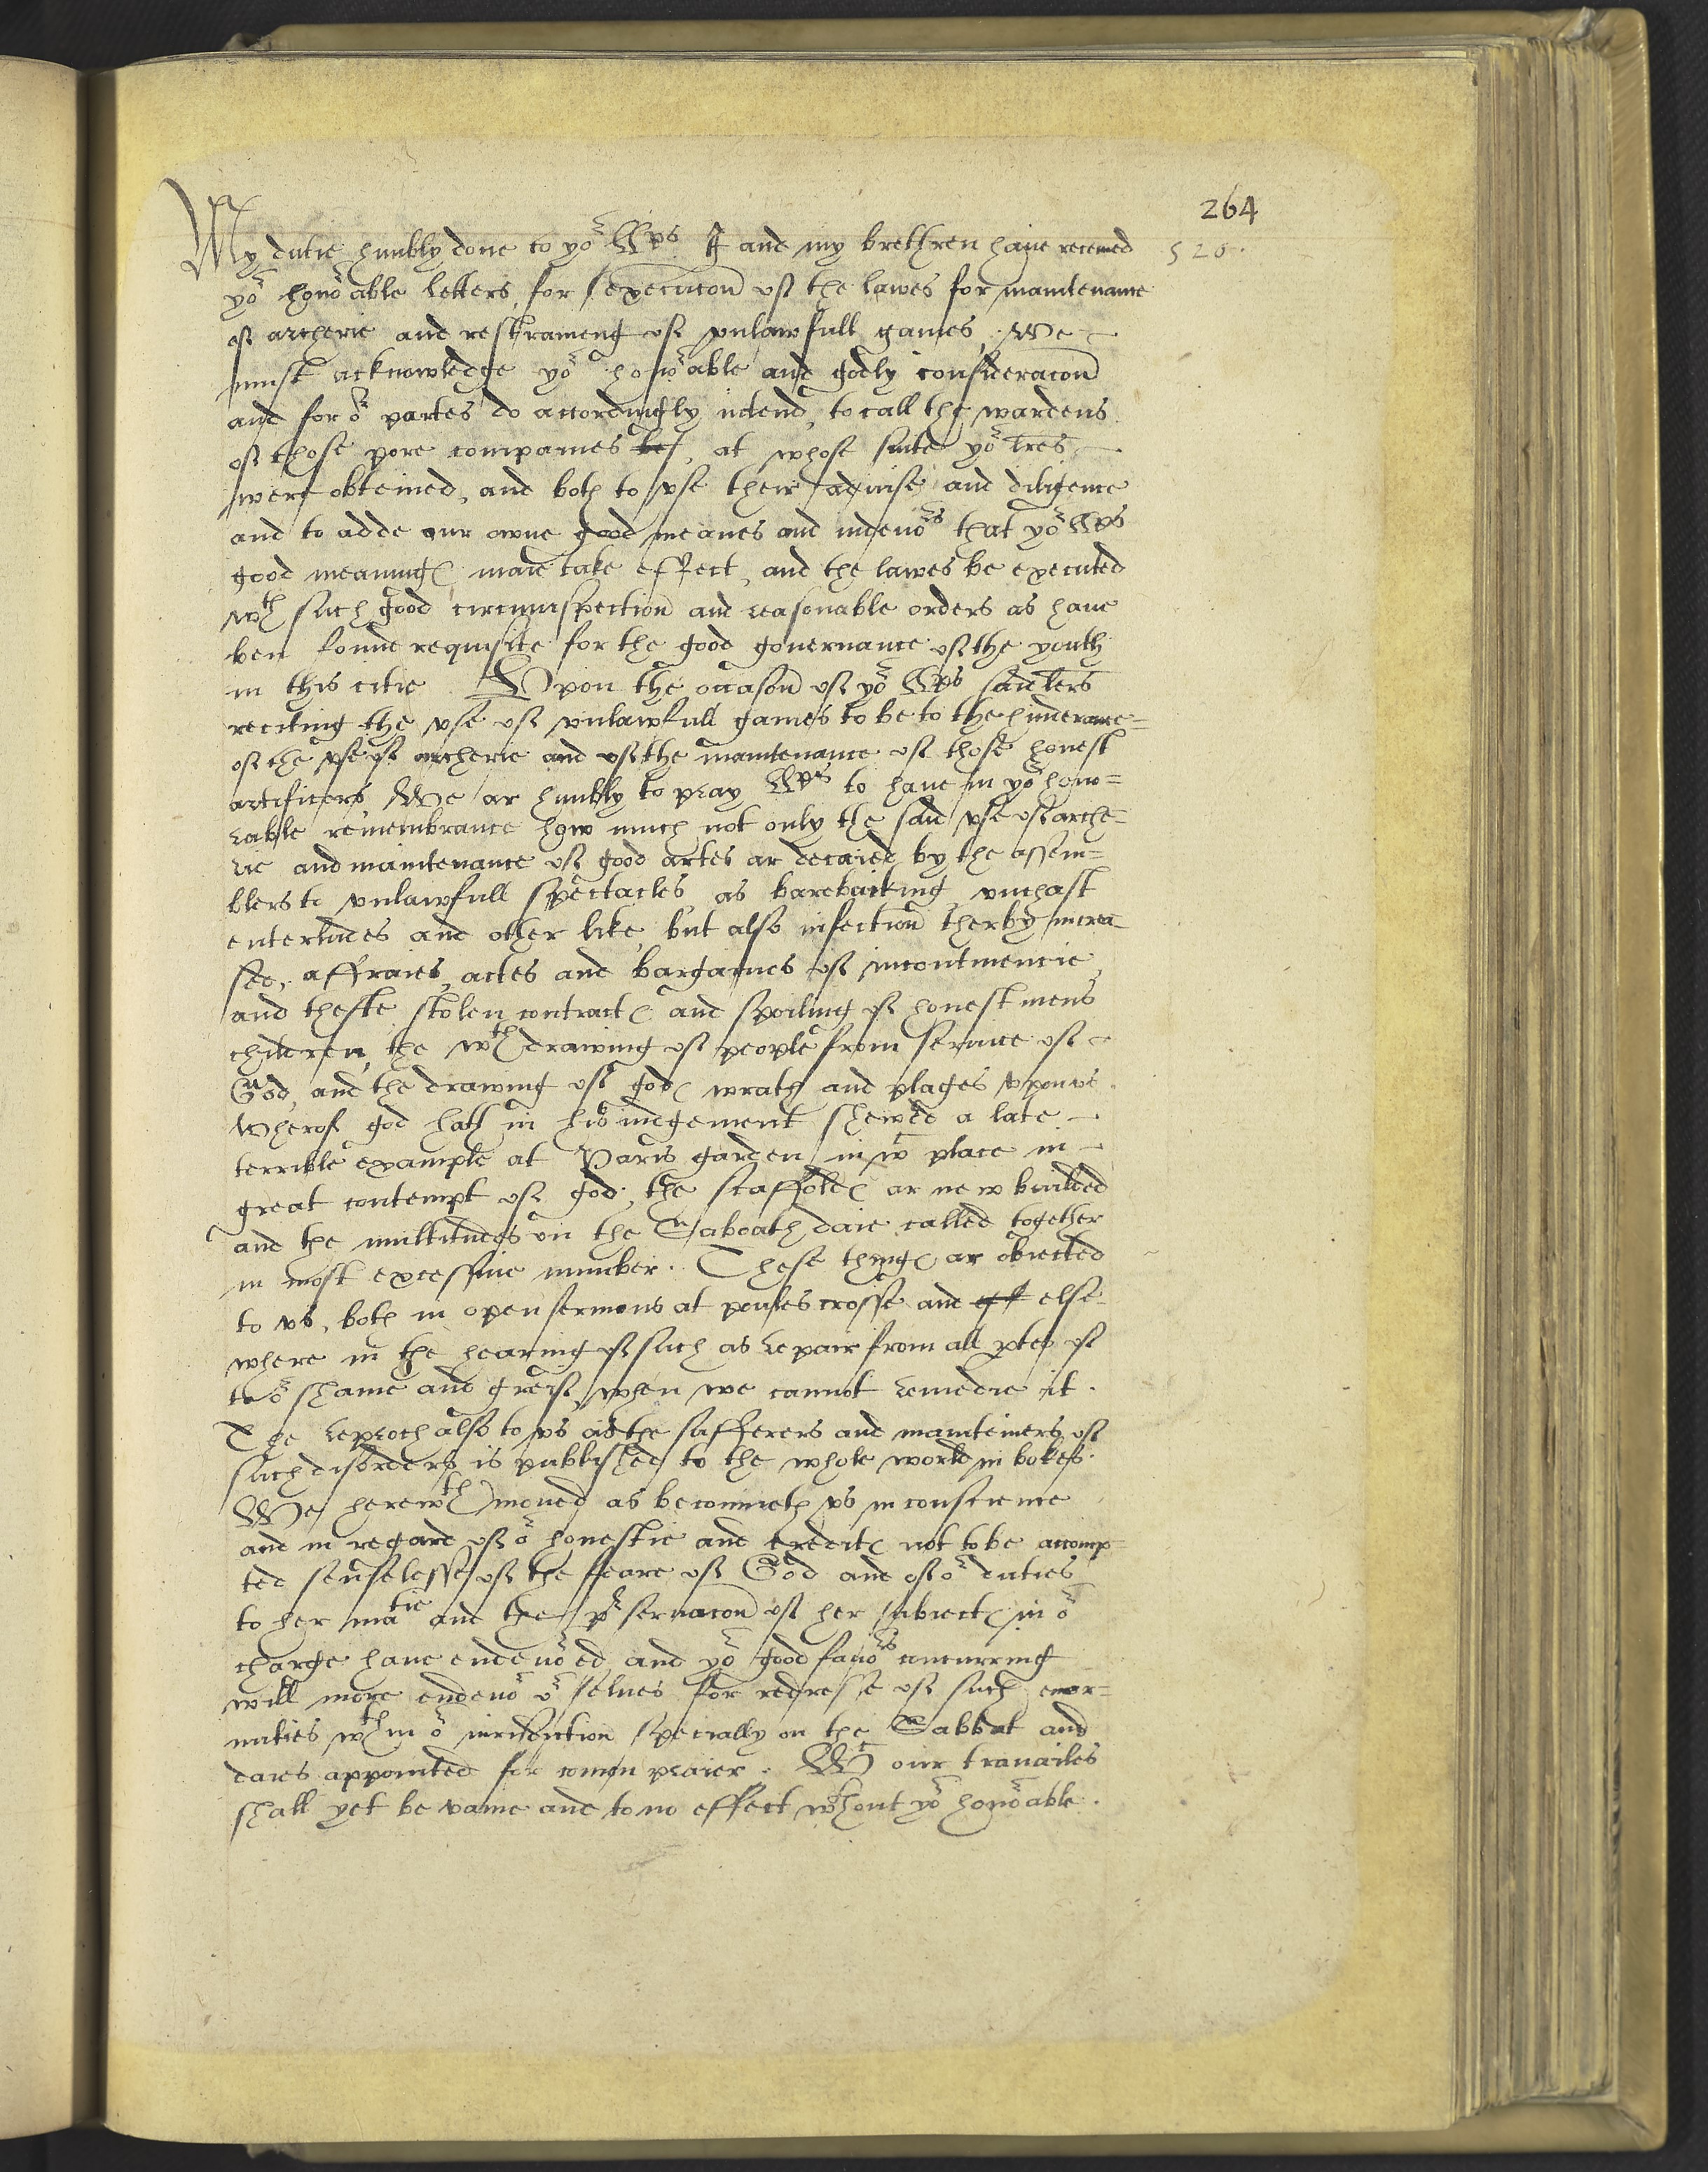 264
My dutie humbly done to yor LLps. I and my brethren haue receiued
528.
yor honorable letters for execucon of the lawes for maintenaunce
of archerie and restraineng of vnlawfull games, We
must acknowledge yor honorable and godly consideracon
and for or partes do accordingly intend, to call the wardens
of those pore companies, at whose sute yor lres
were obteined, and both to vse their aduise and diligence
and to adde our owne good meanes and indeuors that yor LLps
good meaninges maie take effect, and the lawes be executed
wth such good circumspection and reasonable orders as haue
ben founde requisite for the good gouernance of the youth
in this citie. Vpon the occason of yor LLps said lers
reciting the vse of vnlawfull games to be to the hinderance=
of the vse of archerie and of the maintenance of those honest
artificers, We ar humbly to pray LLps to haue in yor hono=
rable remembrance how much not only the said vse of arche=
rie and maintenance of good artes ar decaied by the assem=
blers to vnlawfull spectacles as barebaiting vnchast
enterludes and other like, but also infection therby increa
sed, affraies, actes and bargaines of incontinencie
and thefte stolen contractes and spoiling of honest mens
children, the wthdrawing of people from seruice of
God, and the drawing of godes wrath and plages vpon vs
wherof god hath in his iudgement shewed a late
terrible example at Paris garden, in wc place in
great contempt of god, the scaffoldes ar new builded
and the multitudes on the Saboath daie called together
in most excessiue number. These thinges ar obiected
to vs, both in open sermons at poules crosse and else
where in the hearing of such as repair from all ptes of
to or shame and greif, when we cannot remedie it.
The reproch also to vs as the sufferers and mainteiners of
such disorders is published to the whole world in bokes.
We herewth moued as becommeth vs in conscience
and in regard of or honestie and credites not to be accomp=
ted senselesse of the feare of God and of or duties
to her matie and the preseruacon of her subiectes in or
charge haue endeuored and yor good fauors concurring
will more endeuor or selues for redresse of such enor=
mities wthin or iurisdiction specially on the Sabbat and
daies appointed for comon praier. Wc our trauailes
shall yet be vaine and to no effect wthout yor honorable.